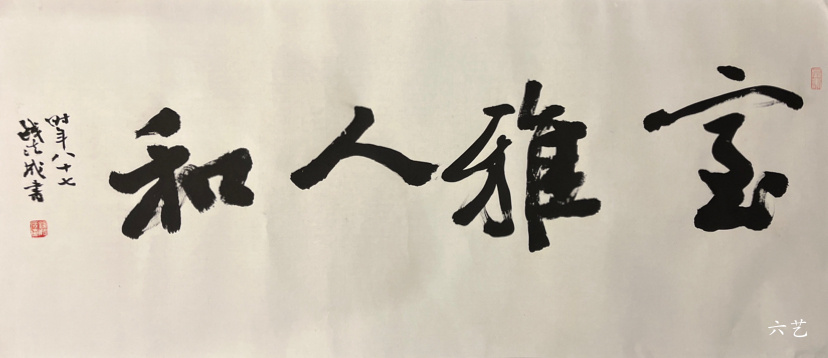 室雅人和
时年八十七
钱法成书
六艺